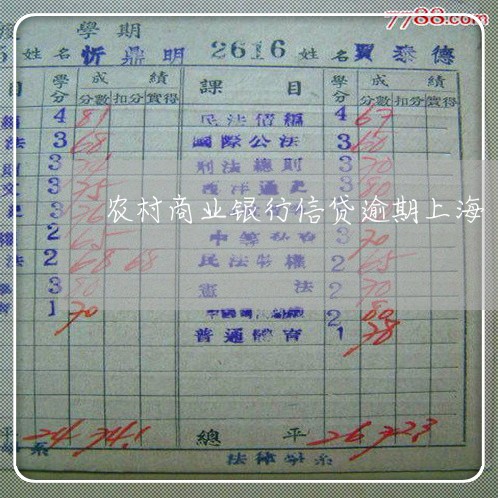 7788.com
學期
姓名 忻鼎明 2616 姓名 賈泰德
目 學分 成績 課目 學分 成績
分數 扣分 實得 分數 扣分 實得
4 81 民法債編 4 67
法 3 68 國際公法 3 60
3 刑法總則 3 70
3 75 西洋通史 3 80
3 76
農村商业银行信贷逾期上海
2 65 3 70
法 2 68 68 民法物權 2 65
3 80 憲法 2 70
1 70 2 80
普通體育 1 78
平 24 74.1 總平 26 72.3
系 法律學系